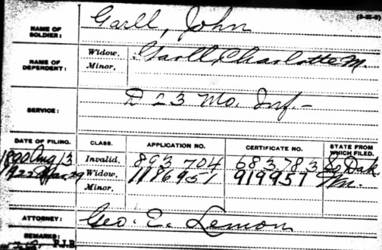 (3-22-6)
NAME OF SOLDIER: Garll, John
NAME OF DEPENDENT: Widow, Garll, Charlotte M.
Minor,
SERVICE: D 23 Mo. Inf.
DATE OF FILING. CLASS. APPLICATION NO. CERTIFICATE NO. STATE FROM WHICH FILED.
1890 Aug 13 Invalid, 893 704 683783 So Dak
1922 Mar 29 Widow, 1186951 919951
Minor,
ATTORNEY: Geo. E. Lemon
REMARKS:
P.I.B.